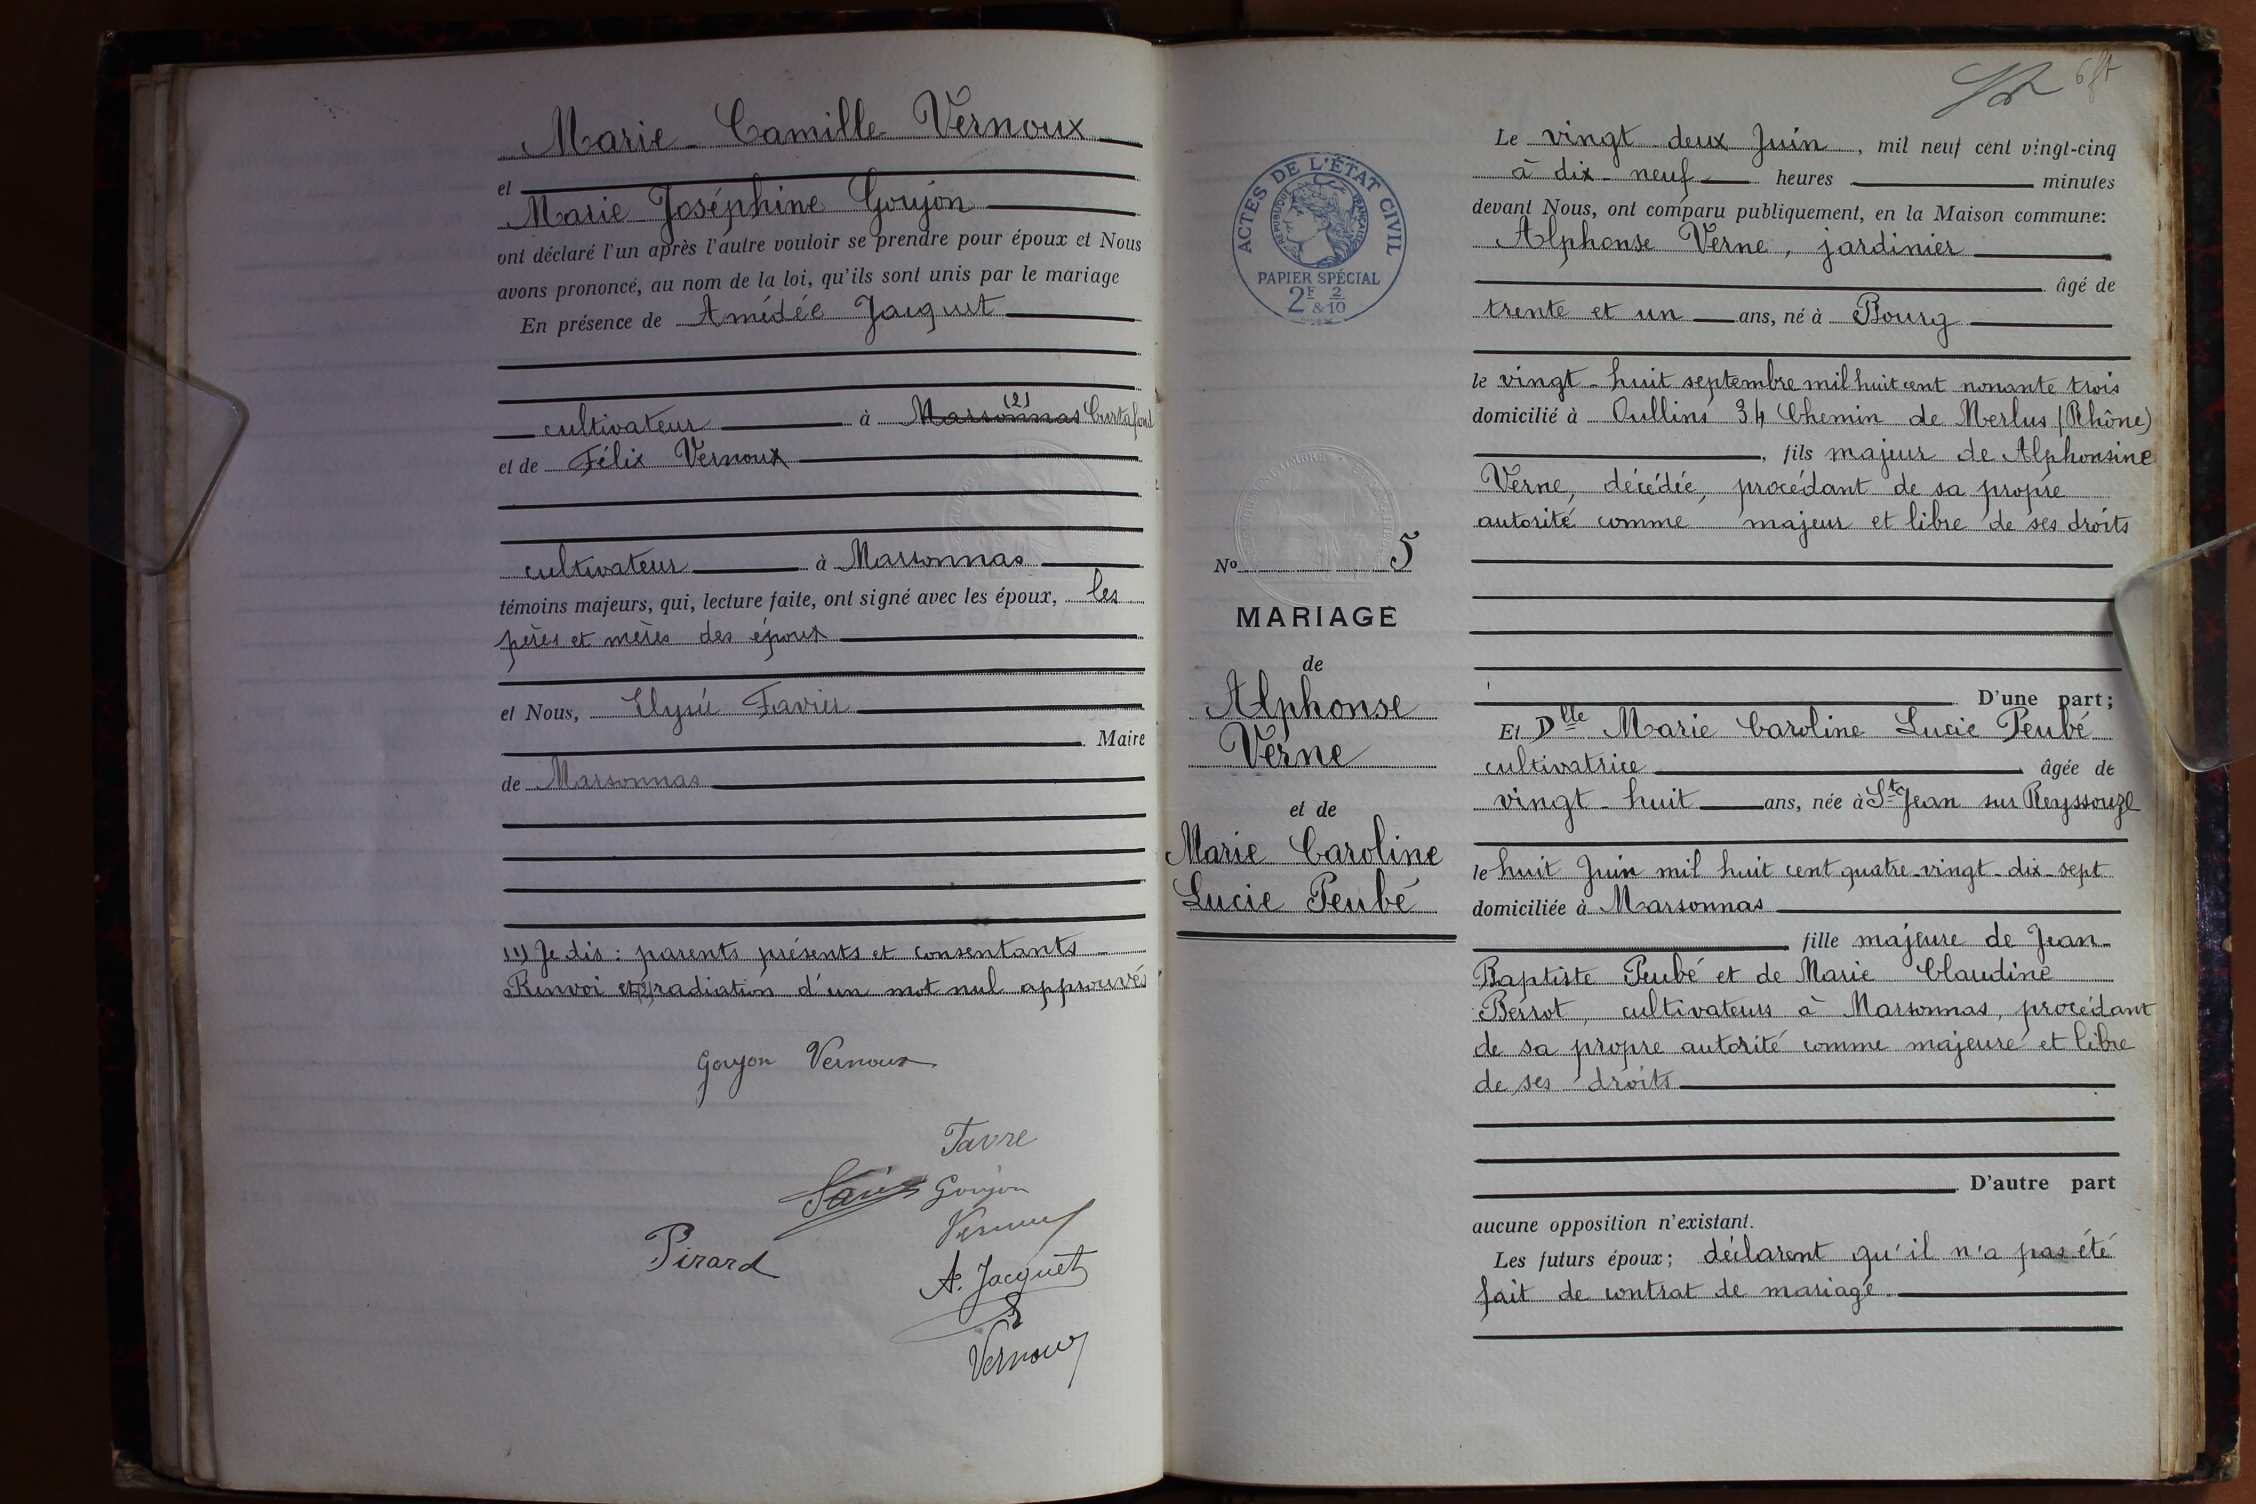 Marie Camille Vernoux
et
Marie Joséphine Goujon
ont déclaré l'un après l'autre vouloir se prendre pour époux et Nous
avons prononcé, au nom de la loi, qu'ils sont unis par le mariage
En présence de Amédée Jacquet
(2)
cultivateur à Marsonnas Curtafond
et de Félix Vernoux
cultivateur à Marsonnas
témoins majeurs, qui, lecture faite, ont signé avec les époux, les
pères et mères des époux
et Nous, Elysée Favier
. Maire
de Marsonnas
(1) Je dis : parents présents et consentants
Renvoi et (2) radiation d'un mot nul approuvés
Goujon Vernoux
Favre
Goujon
Pirard
A. Jacquet
Vernoux
Le vingt deux Juin, mil neuf cent vingt-cinq
à dix-neuf heures minutes
devant Nous, ont comparu publiquement, en la Maison commune:
Alphonse Verne, jardinier
âgé de
trente et un ans, né à Bourg
le vingt-huit septembre mil huit cent nonante trois
domicilié à Oullins 34 Chemin de Merlus (Rhône)
, fils majeur de Alphonsine
Verne, décédée, procédant de sa propre
autorité comme majeur et libre de ses droits
D'une part;
Et Dlle Marie Caroline Lucie Peubé
cultivatrice âgée de
vingt-huit ans, née à St Jean sur Reyssouze
le huit Juin mil huit cent quatre-vingt-dix-sept
domiciliée à Marsonnas
fille majeure de Jean-
Baptiste Peubé et de Marie Claudine
Berrot, cultivateurs à Marsonnas, procédant
de sa propre autorité comme majeure et libre
de ses droits
D'autre part
aucune opposition n'existant.
Les futurs époux; déclarent qu'il n'a pas été
fait de contrat de mariage.
ACTES DE L'ÉTAT CIVIL
RÉPUBLIQUE FRANÇAISE
PAPIER SPÉCIAL
2F & 2/10
No 5
MARIAGE
de
Alphonse
Verne
et de
Marie Caroline
Lucie Peubé